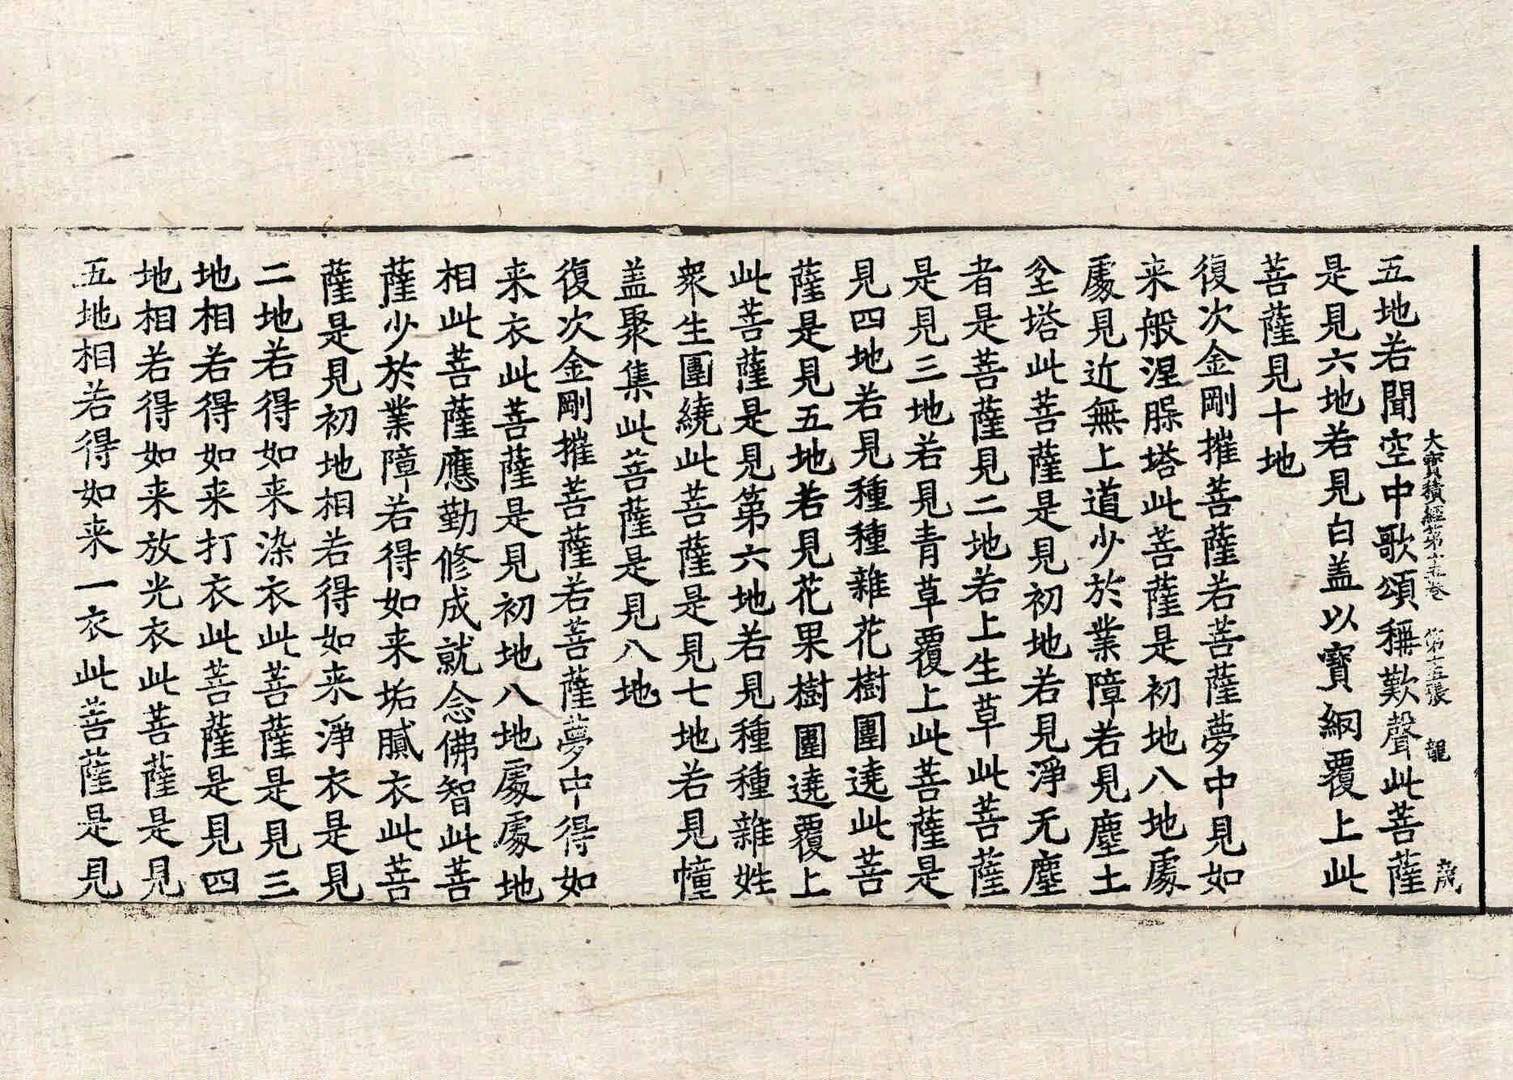 大寶積經第十五卷　第十五張　龍
五地若聞空中歌頌稱歎聲此菩薩
是見六地若見白盖以寶網覆上此
菩薩見十地
復次金剛摧菩薩若菩薩夢中見如
来般涅脲塔此菩薩是初地八地處
處見近無上道少於業障若見塵土
坌塔此菩薩是見初地若見淨无塵
者是菩薩見二地若上生草此菩薩
是見三地若見青草覆上此菩薩是
見四地若見種種雜花樹圍遶此菩
薩是見五地若見花果樹圍遶覆上
此菩薩是見第六地若見種種雜姓
衆生圍繞此菩薩是見七地若見幢
盖聚集此菩薩是見八地
復次金剛摧菩薩若菩薩夢中得如
来衣此菩薩是見初地八地處處地
相此菩薩應勤修成就念佛智此菩
薩少於業障若得如来垢膩衣此菩
薩是見初地相若得如来淨衣是見
二地若得如来染衣此菩薩是見三
地相若得如来打衣此菩薩是見四
地相若得如来放光衣此菩薩是見
五地相若得如来一衣此菩薩是見